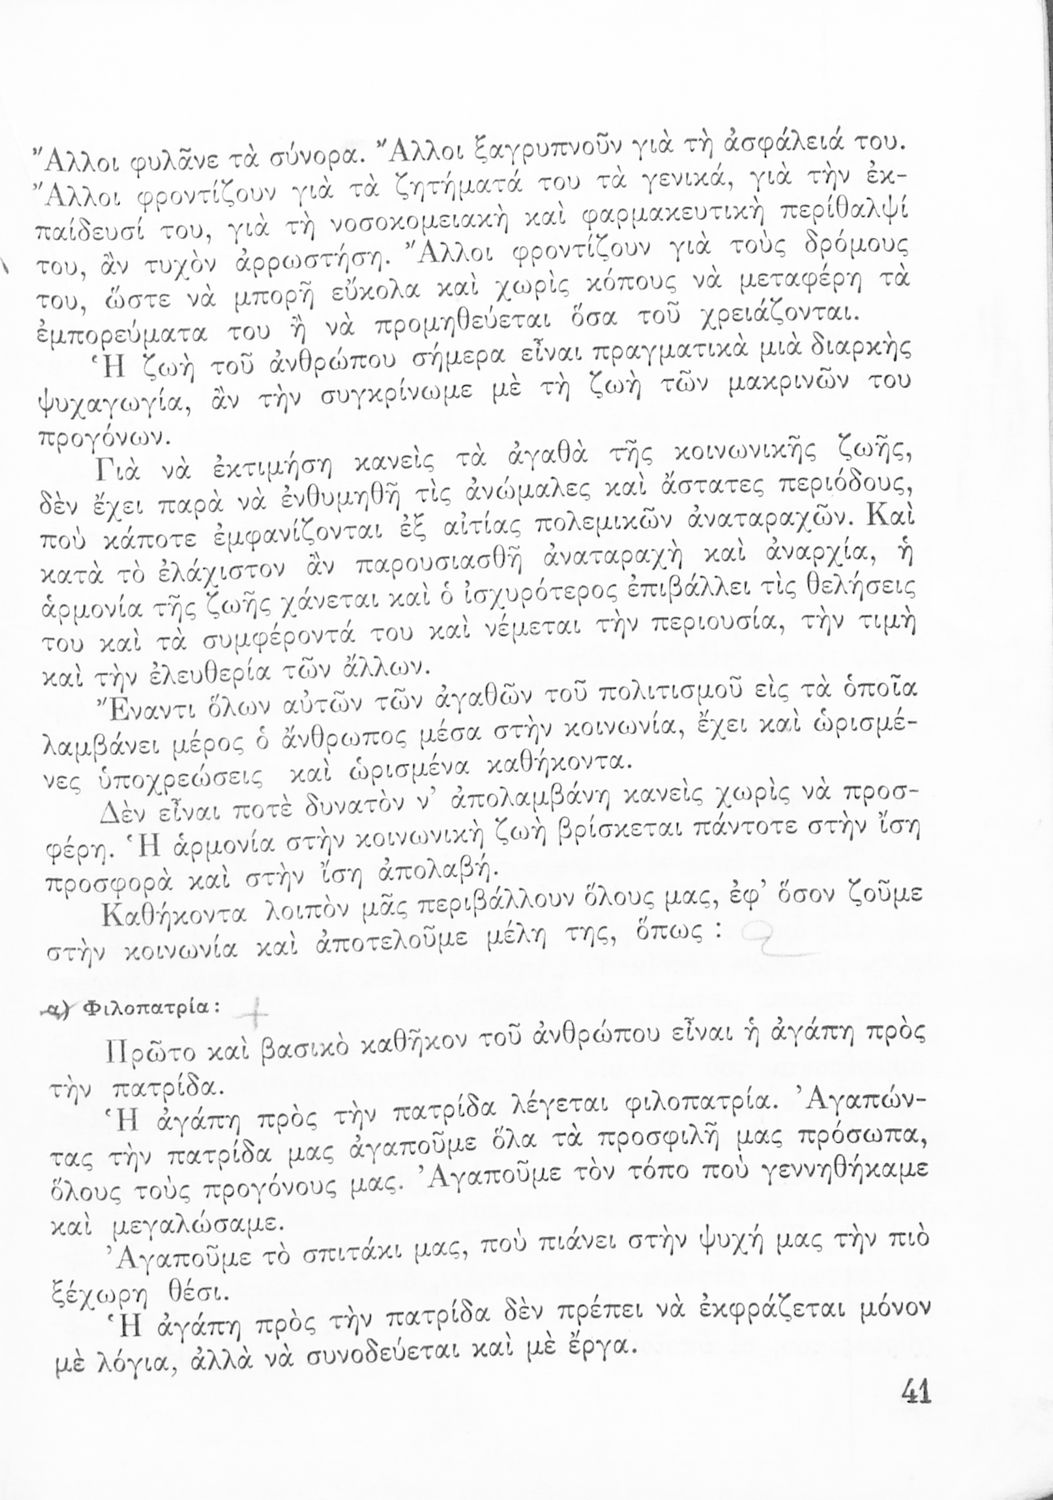 Ἄλλοι φυλᾶνε τὰ σύνορα. Ἄλλοι ξαγρυπνοῦν γιὰ τὴ ἀσφάλειά του.
Ἄλλοι φροντίζουν γιὰ τὰ ζητήματά του τὰ γενικά, γιὰ τὴν ἐκ-
παίδευσί του, γιὰ τὴ νοσοκομειακὴ καὶ φαρμακευτικὴ περίθαλψί
του, ἂν τυχὸν ἀρρωστήση. Ἄλλοι φροντίζουν γιὰ τοὺς δρόμους
του, ὥστε νὰ μπορῆ εὔκολα καὶ χωρὶς κόπους νὰ μεταφέρη τὰ
ἐμπορεύματα του ἢ νὰ προμηθεύεται ὅσα τοῦ χρειάζονται.
Ἡ ζωὴ τοῦ ἀνθρώπου σήμερα εἶναι πραγματικὰ μιὰ διαρκὴς
ψυχαγωγία, ἂν τὴν συγκρίνωμε μὲ τὴ ζωὴ τῶν μακρινῶν του
προγόνων.
Γιὰ νὰ ἐκτιμήση κανεὶς τὰ ἀγαθὰ τῆς κοινωνικῆς ζωῆς,
δὲν ἔχει παρὰ νὰ ἐνθυμηθῆ τὶς ἀνώμαλες καὶ ἄστατες περιόδους,
ποὺ κάποτε ἐμφανίζονται ἐξ αἰτίας πολεμικῶν ἀναταραχῶν. Καὶ
κατὰ τὸ ἐλάχιστον ἂν παρουσιασθῆ ἀναταραχὴ καὶ ἀναρχία, ἡ
ἁρμονία τῆς ζωῆς χάνεται καὶ ὁ ἰσχυρότερος ἐπιβάλλει τὶς θελήσεις
του καὶ τὰ συμφέροντά του καὶ νέμεται τὴν περιουσία, τὴν τιμὴ
καὶ τὴν ἐλευθερία τῶν ἄλλων.
Ἔναντι ὅλων αὐτῶν τῶν ἀγαθῶν τοῦ πολιτισμοῦ εἰς τὰ ὁποῖα
λαμβάνει μέρος ὁ ἄνθρωπος μέσα στὴν κοινωνία, ἔχει καὶ ὡρισμέ-
νες ὑποχρεώσεις καὶ ὡρισμένα καθήκοντα.
Δὲν εἶναι ποτὲ δυνατὸν ν' ἀπολαμβάνη κανεὶς χωρὶς νὰ προσ-
φέρη. Ἡ ἁρμονία στὴν κοινωνικὴ ζωὴ βρίσκεται πάντοτε στὴν ἴση
προσφορὰ καὶ στὴν ἴση ἀπολαβή.
Καθήκοντα λοιπὸν μᾶς περιβάλλουν ὅλους μας, ἐφ' ὅσον ζοῦμε
στὴν κοινωνία καὶ ἀποτελοῦμε μέλη της, ὅπως :
α) Φιλοπατρία :
Πρῶτο καὶ βασικὸ καθῆκον τοῦ ἀνθρώπου εἶναι ἡ ἀγάπη πρὸς
τὴν πατρίδα.
Ἡ ἀγάπη πρὸς τὴν πατρίδα λέγεται φιλοπατρία. Ἀγαπών-
τας τὴν πατρίδα μας ἀγαποῦμε ὅλα τὰ προσφιλῆ μας πρόσωπα,
ὅλους τοὺς προγόνους μας. Ἀγαποῦμε τὸν τόπο ποὺ γεννηθήκαμε
καὶ μεγαλώσαμε.
Ἀγαποῦμε τὸ σπιτάκι μας, ποὺ πιάνει στὴν ψυχή μας τὴν πιὸ
ξέχωρη θέσι.
Ἡ ἀγάπη πρὸς τὴν πατρίδα δὲν πρέπει νὰ ἐκφράζεται μόνον
μὲ λόγια, ἀλλὰ νὰ συνοδεύεται καὶ μὲ ἔργα.
41